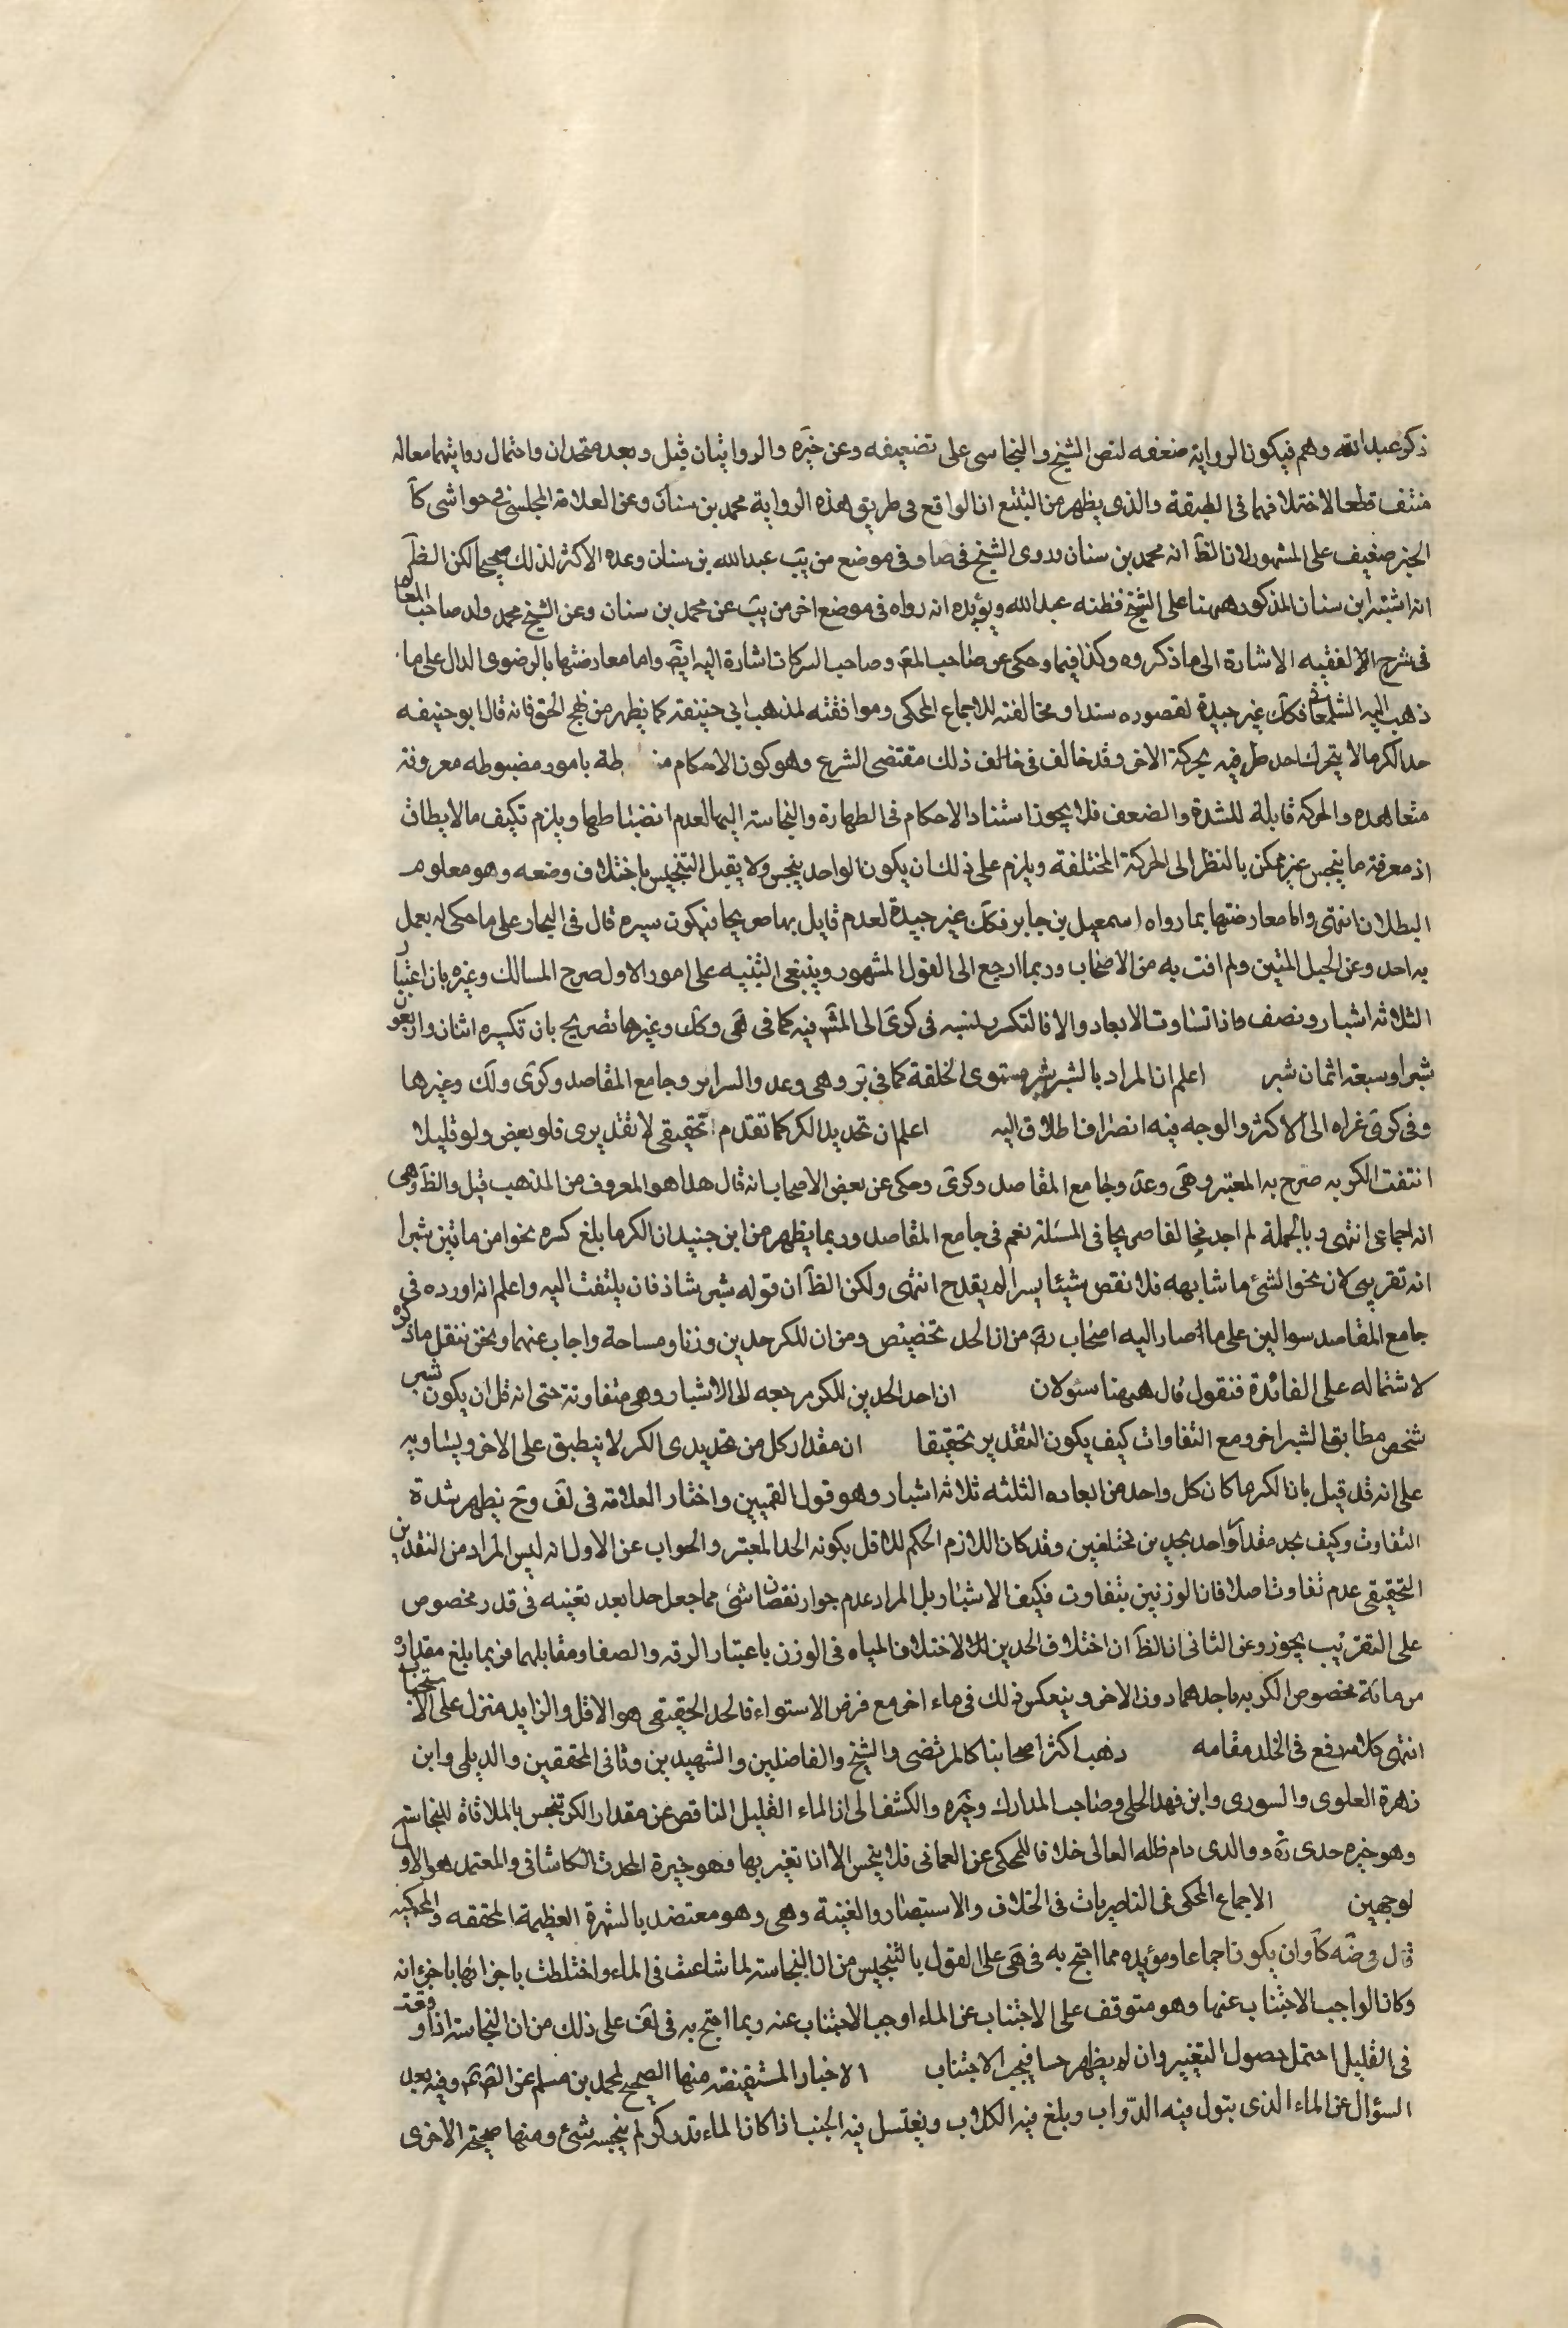 ذكر عبد الله وهم فيكون الرواية ضعفه لنص الشيخ والنجاسى على تضعيفه وعن خيره والروايتان قيل وبعد متحدان واحتمال روايتهما معا له
منتف قطعا لاختلافهما فى الطبقة والذى يظهر من التتبع ان الواقع فى طريق هذه الرواية محمد بن سنان وعن العلامة المجلسى فى حواشى كا
الخبر ضعيف على المشهور لان الظ انه محمد بن سنان وروى الشيخ فى صا وفى موضع من يب عبد الله بن سنان وعده الاكثر لذلك صحيحا لكن الظ
انه اشتبه ابن سنان المذكور ههنا على الشيخ فظنه عبد الله ويؤيده انه رواه فى موضع اخر من يب عن محمد بن سنان وعن الشيخ محمد ولد صاحب المعا
فى شرح الالفقيه الاشارة الى ما ذكروه وكذا فيما وحكى عن صاحب المع وصاحب البركات اشارة اليه ايض واما معارضتها بالرضوى الدال على ما
ذهب اليه الشلمغانى فكك غير جيدة لقصوره سندا ومخالفته للاجماع المحكى وموافقته لمذهب ابى حنيفة كما يظهر من نهج الحق فانه قال ابو حنيفه
حد الكر ما لا يتحرك احد طرفيه بحركة الاخر وقد خالف فى ذلك مقتضى الشرع وهو كون الاحكام من طة بامور مضبوطه معروفة
متعاهده والحركة قابلة للشدة والضعف فلا يجوز استناد الاحكام فى الطهارة والنجاسة اليها لعدم انضباطها ويلزم تكيف ما لا يطاق
اذ معرفة ما ينجس غير ممكن بالنظر الى الحركة المختلفة ويلزم على ذلك ان يكون الواحد ينجس ولا يقبل التنجيس باختلاف وضعه وهو معلوم
البطلان انتهى واما معارضتها بما رواه اسمعيل بن جابر فكك غير جيدة لعدم قايل بها صريحا فيكون سيره قال فى البحار على ما حكى لم يعمل
به احد وعن الحبل المتين ولم افت به من الاصحاب وربما ارجع الى القول المشهور وينبغى التنبيه على امور الاول صرح المسالك وغيره بان اعتبار
الثلاثة اشبار ونصف ماذا تساوت الابعاد والا فالتكسر لنسبه فى كرى الى المش فيه كما فى هى وكك وغيرها تصريح بان تكسيره اثنان واربعون
شبرا وسبعة اثمان شبر اعلم ان المراد بالشبر شبر مستوى الخلقة كما فى تر وهى وعد والسرائر وجامع المقاصد وكرى ولك وغيرها
وفى كرى غراه الى الاكثر والوجه فيه انصراف اطلاق اليه اعلم ان تحديد الكر كما تقدم تحقيقى لا تقديرى فلو بعض ولو قليلا
انتفت الكريه صرح به المعتبر وهى وعد وجامع المقاصد وكرى وحكى عن بعض الاصحاب انه قال هذا هو المعروف من المذهب قيل والظ وهى
انه اجماعى انتهى وبالجملة لم اجد مخالفا صريحا فى المسئلة نعم فى جامع المقاصد وربما يظهر من ابن جنيد ان الكر ما بلغ كسره نحوا من ماتين شبرا
انه تقريبى لان نحو الشئ ما شابهه فلا نقص شيئا يسرا لم يقدح انتهى ولكن الظ ان قوله شبر شاذ فان يلتفت اليه واعلم انه اورده فى
جامع المقاصد سوالين على ما اصار اليه اصحاب من ان الحد تخصيص ومن ان للكر حدين وزنا ومساحة واجاب عنهما ونحن ننقل ما ذكره
لاشتماله على الفائدة فنقول قال ههنا سئولان ان احد الحدين للكر مرجعه الى الاشبار وهى متفاوتة حتى انه قل ان يكون شبر
شخص مطابقا لشبر اخر ومع التفاوات كيف يكون التقدير تحقيقا ان مقدار كل من تحديدى الكر لا ينطبق على الاخر ويساويه
على انه قد قيل بان الكر ما كان كل واحد من ابعاده الثلثه ثلاثه اشبار وهو قول القميين واختار العلامة فى لف وح يظهر شدة
التفاوت وكيف يحد مقدار واحد بحدين مختلفين وقد كان اللازم الحكم للاقل بكونه الحد المعتبر والجواب عن الاول انه ليس المراد من التقدير
التحقيقى عدم تفاوت اصلا فان الوزنين يتفاوت فكيف الاشبار بل المراد عدم جواز نقصان شئ مما جعل حدا بعد تعينه فى قدر مخصوص
على التقريب يجوز وعن الثانى ان الظ ان اختلاف الحدين لاختلاف المياه فى الوزن باعتبار الرقه والصفا ومقابلهما فربما بلغ مقداره
من مائة مخصوص الكريه باحدهما دون الاخر وينعكس ذلك فى ماء اخر مع فرض الاستواء فالحد الحقيقى هو الاقل والزايد منزل على الاستحباب
انتهى كلامه رفع فى الخلد مقامه ذهب اكثر اصحابنا كالمرتضى والشيخ والفاضلين والشهيدين وثانى المحققين والديلى وابن
زهرة العلوى والسورى وابن فهد الحلى وصاحب المدارك وخيره والكشف الى ان الماء القليل الناقص عن مقدار الكر تنجس بالملاقاة للنجاسة
وهو خيره جدى ره ووالدى دام ظله العالى خلافا للمحكى عن العمانى فلا ينجس الا ان تغير بها وهو خيرة المحدث الكاشانى والمعتمد هو الاول
لوجهين الاجماع المحكى فى الناصريات فى الخلاف والاستبصار والغنية وهى وهو معتضد بالشهرة العظيمة المحققه والمحكيه
قال وضه كا وان يكون اجماعا ومؤيده مما احتج به فى هى على القول بالتنجيس من ان النجاسة لما شاعت فى الماء واختلطت باجزائها باجزائه
وكان الواجب الاجتناب عنها وهو متوقف على الاجتناب عن الماء اوجب الاجتناب عنه ربما احتج به فى لف على ذلك من ان النجاسة اذا وقعت
فى القليل احتمل حصول التغيير وان لم يظهر حسا فيجب الاجتناب الاخبار المستفيضة منها الصحيح لمحمد بن مسلم عن الصم وفيه بعد
السؤال عن الماء الذى يتول فيه الدواب وبلغ فيه الكلاب ويغتسل فيه الجنب اذا كان الماء قدر كر لم ينجسه شئ ومنها صحيحته الاخرى